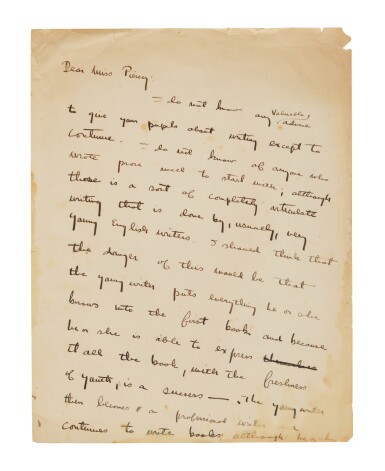 Dear Miss Piercy.
I do not know any valuable advice
to give your pupils about writing except to
continue. I do not know of anyone who
wrote prose well to start with; although
there is a sort of completely articulate
writing that is done by, usually, very
young English writers. I should think that
the danger of this would be that
the young writer puts everything he or she
knows into the first books and because
he or she is able to express
it all the book, with the freshness
of youth, is a success — The young writer
then becomes a professional writer and
continues to write books although he or she